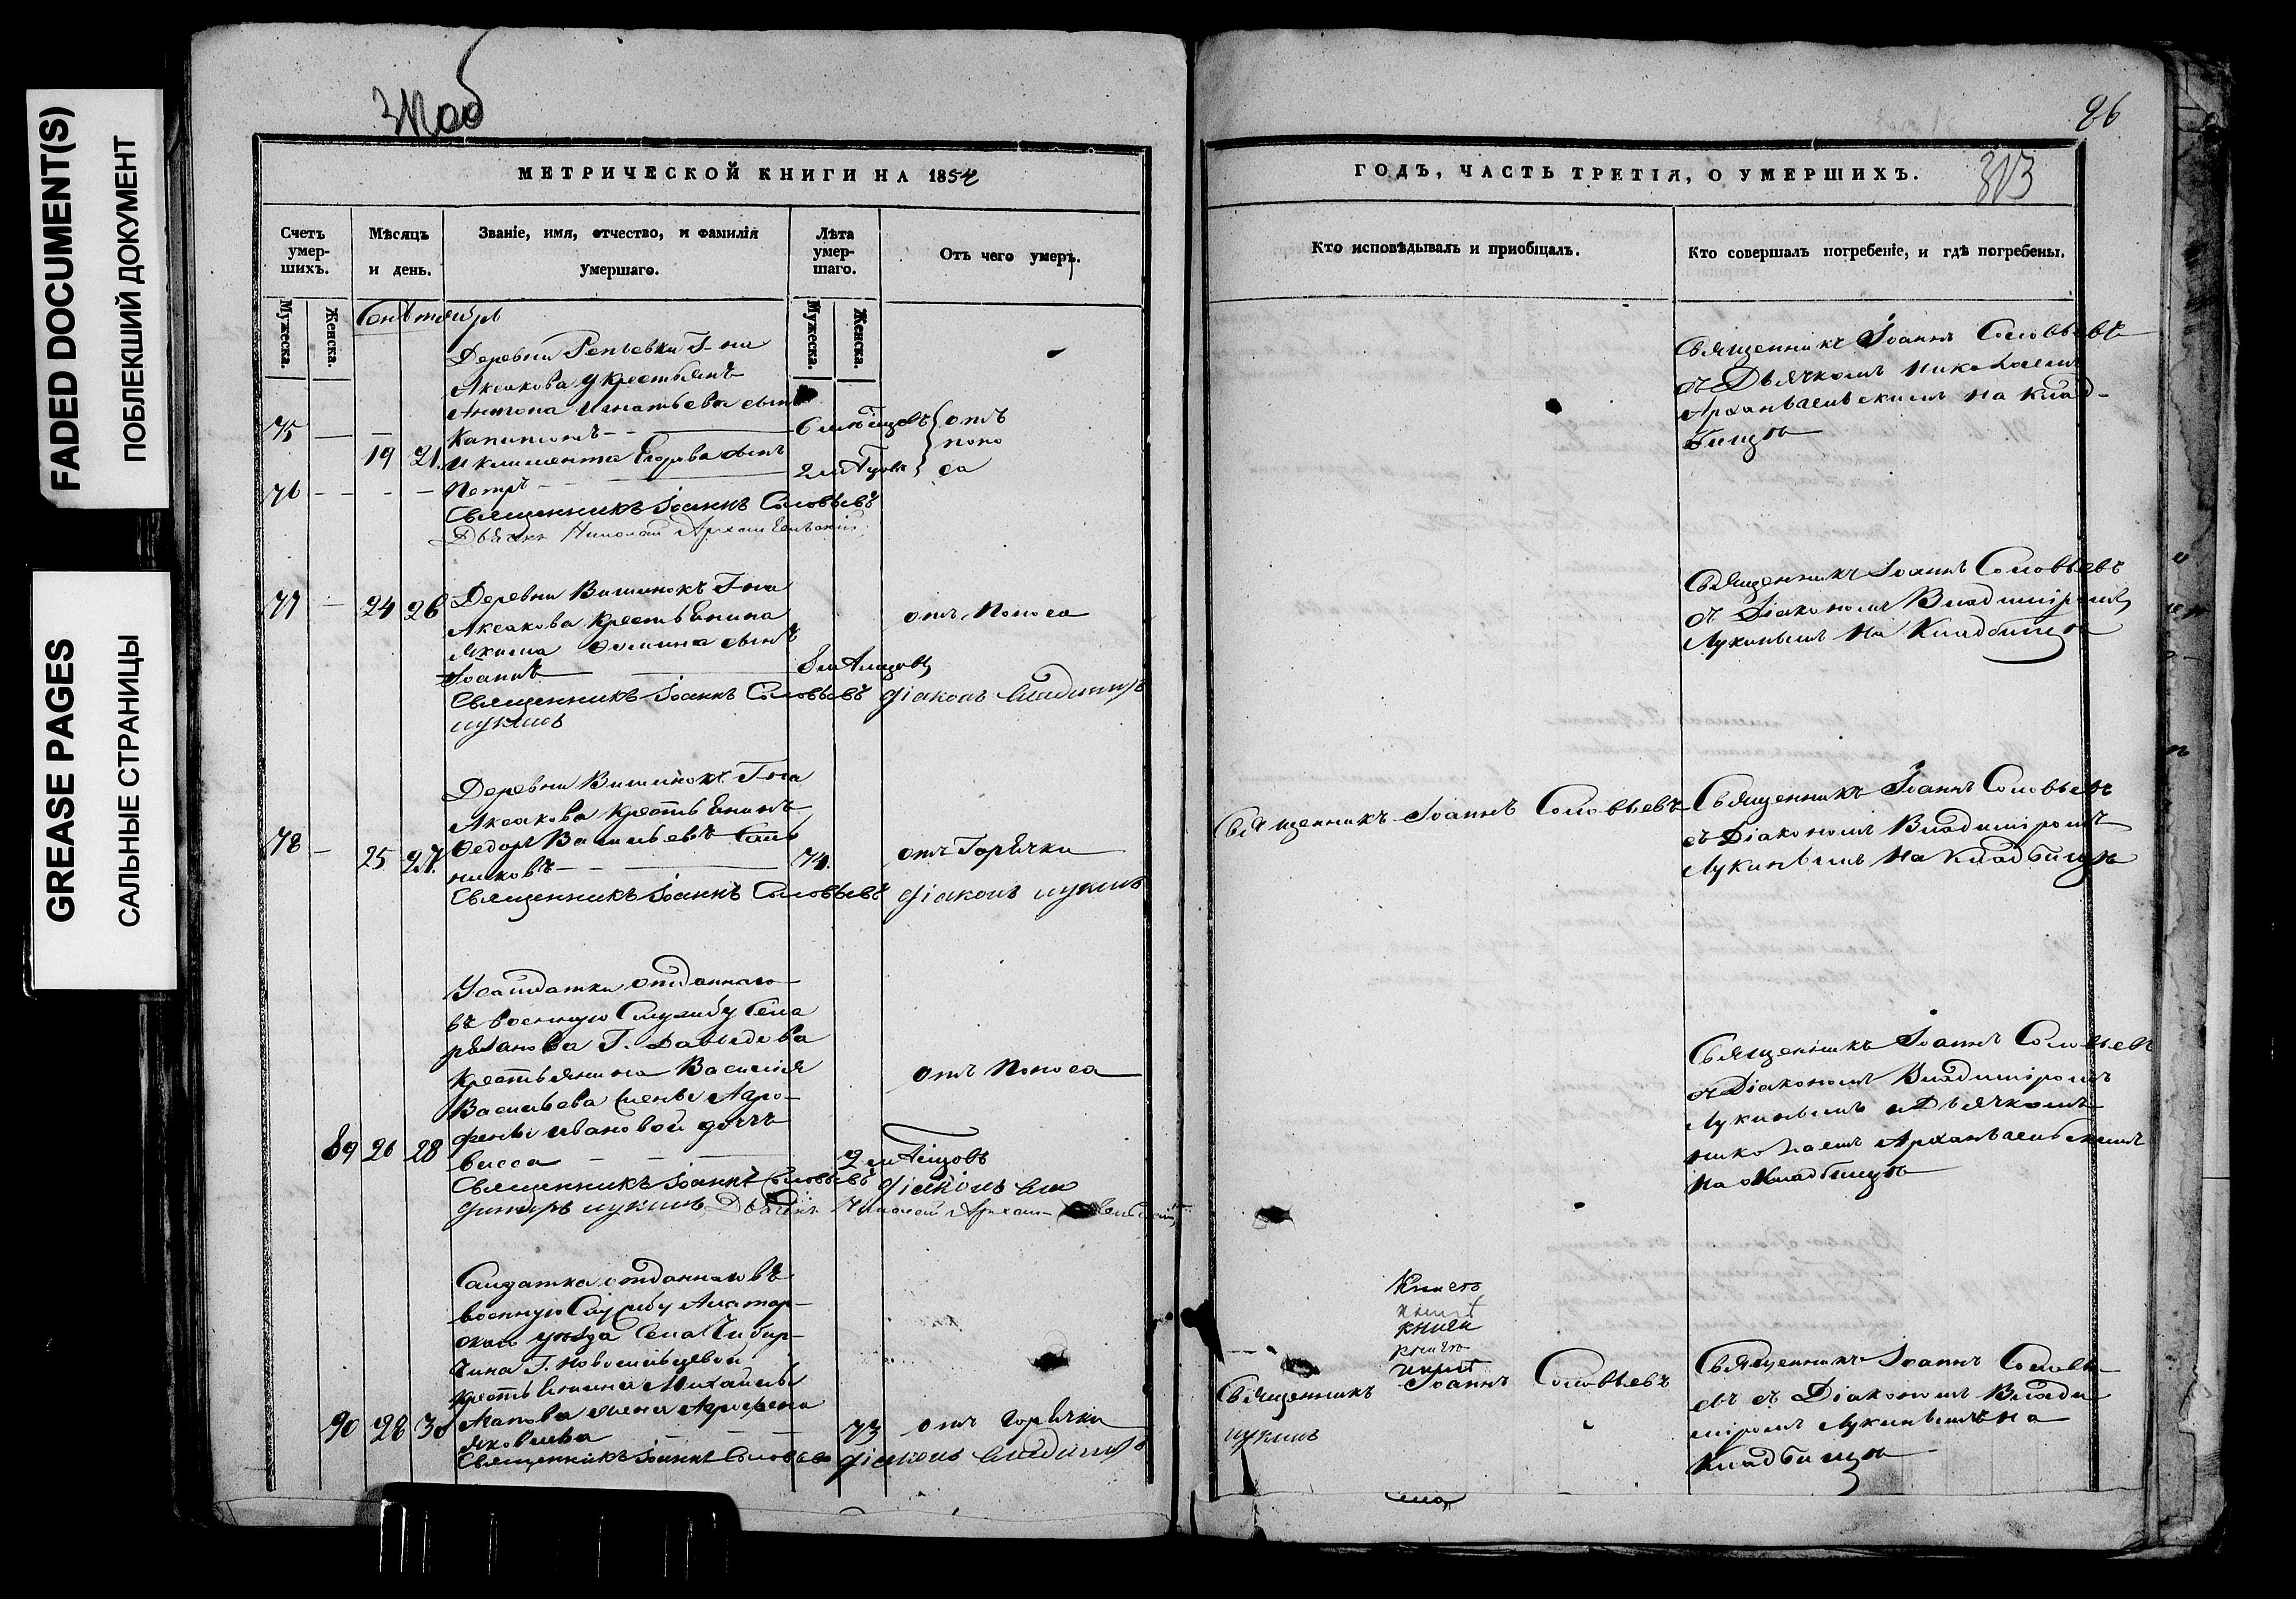 FADED DOCUMENT(S)
ПОБЛЕКШИЙ ДОКУМЕНТ
GREASE PAGES
САЛЬНЫЕ СТРАНИЦЫ
МЕТРИЧЕСКОЙ КНИГИ НА 1854
Счетъ умер-шихъ.
Мѣсяцъ и день.
Званіе, имя, отчество, и фамилія умершаго.
Лѣта умер-шаго.
Отъ чего умеръ.
Мужеска.
Женска.
Мужеска.
Женска.
Сентябрь
Деревни Репьевки Г-на
Аксакова у крестьянъ
Антона Игнатьева сынъ
75 Капитонъ 6 мѣсяцовъ отъ
19 21. и Климента Егорова сынъ поно
2 мѣсяцовъ са
76 Петръ
Священникъ Іоаннъ Соловьевъ
Дьячекъ Николай Архангельскій
77 24 26 Деревни Вишенокъ Г-на
Аксакова крестьянина отъ Поноса
Якима сынъ
Іоаннъ 8 мѣсяцовъ
Священникъ Іоаннъ Соловьевъ Діаконъ Владиміръ
Лукинъ
Деревни Вишенокъ Г-на
Аксакова крестьянинъ
78 25 27. Ѳедоръ Васильевъ
никовъ 74. отъ Горячки
Священникъ Іоаннъ Соловьевъ Діаконъ Лукинъ
У солдатки отданнаго
въ военную Службу Села
Г. Давыдова
крестьянина Василія отъ Поноса
Васильева жены Агро-
фены Ивановой дочь
89 26 28 Васса 2 мѣсяцовъ
Священникъ Іоаннъ Соловьевъ Діаконъ Вла
диміръ Лукинъ Дьячекъ Николай Архангельскій
Солдатка отданнаго въ
военную Службу Алатор-
скаго уѣзда Села Чебор-
чина Г. Новосильцевой
крестьянина Михаилы
90 28 30 Агапова жена Агрофена
Яковлева 73 отъ Горячки
Священникъ Іоаннъ Соловьевъ Діаконъ Владиміръ
86
ГОДЪ, ЧАСТЬ ТРЕТІЯ, О УМЕРШИХЪ.
313
Кто исповѣдывалъ и пріобщалъ.
Кто совершалъ погребеніе, и гдѣ погребены.
Священникъ Іоаннъ Соловьевъ
съ Дьячкомъ Николаемъ
Архангельскимъ на клад-
бищѣ
Священникъ Іоаннъ Соловьевъ
съ Діакономъ Владиміромъ
Лукинымъ на Кладбищѣ
Священникъ Іоаннъ Соловьевъ
Священникъ Іоаннъ Соловьевъ
съ Діакономъ Владиміромъ
Лукинымъ на Кладбищѣ
Священникъ Іоаннъ Соловьевъ
съ Діакономъ Владиміромъ
Лукинымъ и Дьячкомъ
Николаемъ Архангельскимъ
на Кладбищѣ
книги
Священникъ Іоаннъ Соловьевъ
Лукинъ
Священникъ Іоаннъ Соловь-
евъ съ Діакономъ Влади
міромъ Лукинымъ на
Кладбищѣ